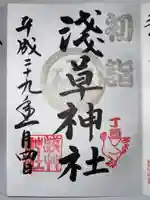 初詣
丁酉
淺草神社
平成二十九年一月四日